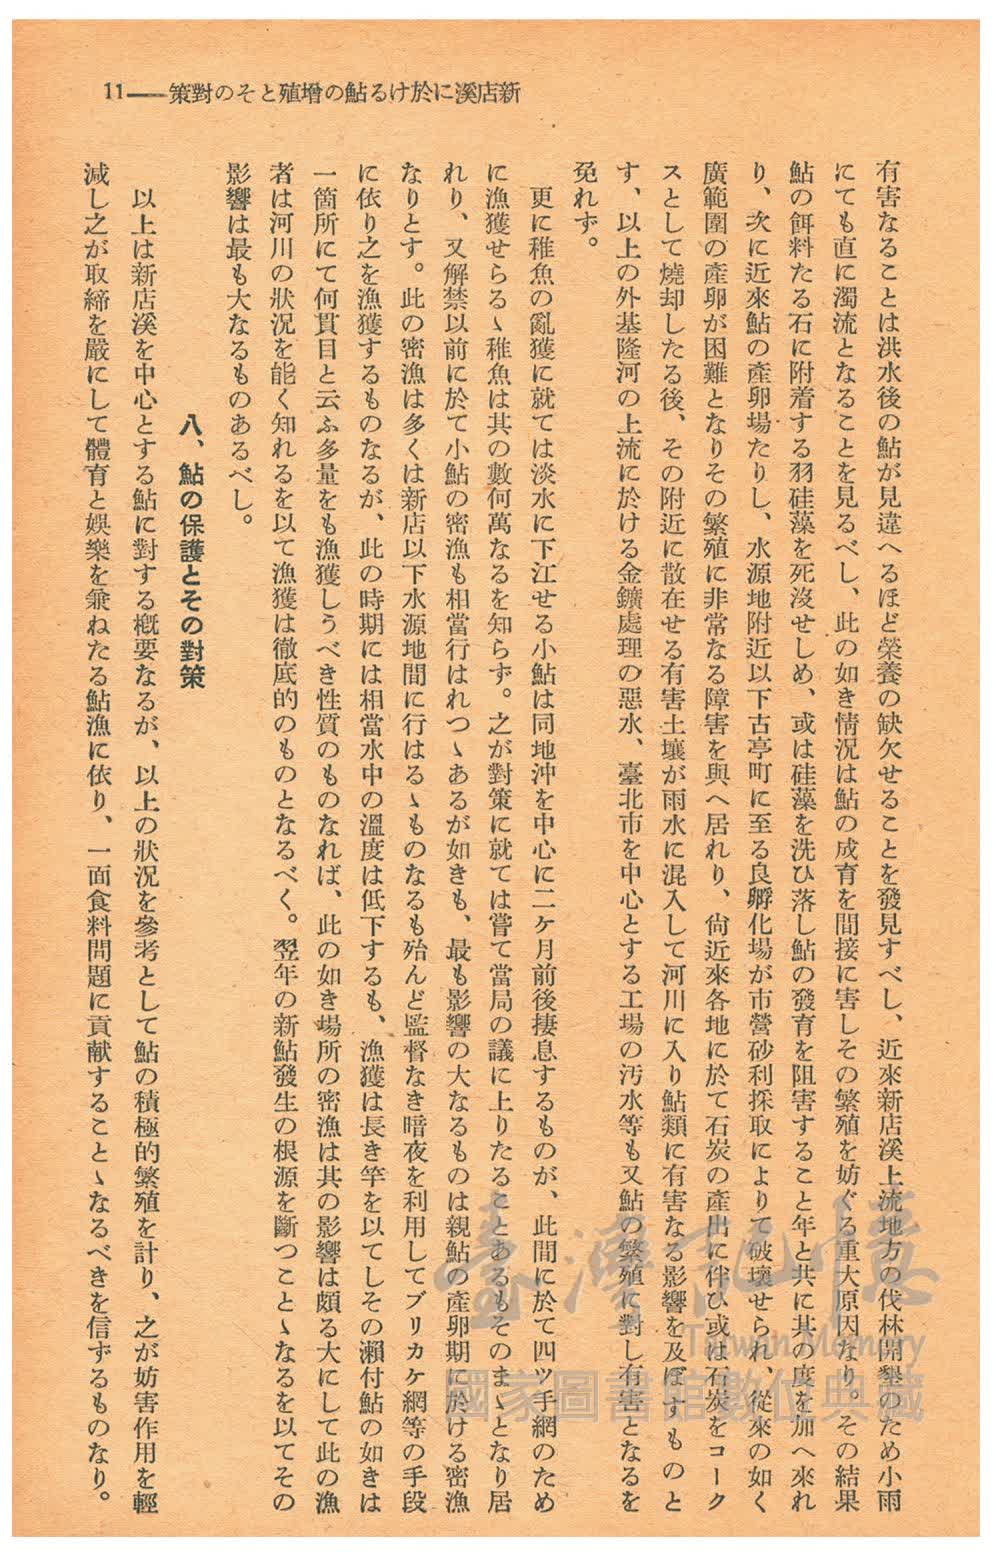 新店溪に於ける鮎の增殖とその對策——11
有害なることは洪水後の鮎が見違へるほど榮養の缺欠せることを發見すべし、近來新店溪上流地方の伐林開墾のため小雨
にても直に濁流となることを見るべし、此の如き情況は鮎の成育を間接に害しその繁殖を妨ぐる重大原因なり。その結果
鮎の餌料たる石に附着する羽硅藻を死沒せしめ、或は硅藻を洗ひ落し鮎の發育を阻害すること年と共に其の度を加へ來れ
り、次に近來鮎の產卵場たりし、水源地附近以下古亭町に至る良孵化場が市營砂利採取によりて破壞せられ、從來の如く
廣範圍の產卵が困難となりその繁殖に非常なる障害を與へ居れり、尙近來各地に於て石炭の產出に伴ひ或は石炭をコーク
スとして燒却したる後、その附近に散在せる有害土壤が雨水に混入して河川に入り鮎類に有害なる影響を及ぼすものと
す、以上の外基隆河の上流に於ける金鑛處理の惡水、臺北市を中心とする工場の汚水等も又鮎の繁殖に對し有害となるを
免れず。
更に稚魚の亂獲に就ては淡水に下江せる小鮎は同地沖を中心に二ケ月前後捿息するものが、此間に於て四ツ手網のため
に漁獲せらるゝ稚魚は其の數何萬なるを知らず。之が對策に就ては嘗て當局の議に上りたることあるもそのまゝとなり居
れり、又解禁以前に於て小鮎の密漁も相當行はれつゝあるが如きも、最も影響の大なるものは親鮎の產卵期に於ける密漁
なりとす。此の密漁は多くは新店以下水源地間に行はるゝものなるも殆んど監督なき暗夜を利用してブリカケ網等の手段
に依り之を漁獲するものなるが、此の時期には相當水中の溫度は低下するも、漁獲は長き竿を以てしその瀨付鮎の如きは
一箇所にて何貫目と云ふ多量をも漁獲しうべき性質のものなれば、此の如き場所の密漁は其の影響は頗る大にして此の漁
者は河川の狀況を能く知れるを以て漁獲は徹底的のものとなるべく。翌年の新鮎發生の根源を斷つことゝなるを以てその
影響は最も大なるものあるべし。
八、鮎の保護とその對策
以上は新店溪を中心とする鮎に對する槪要なるが、以上の狀況を參考として鮎の積極的繁殖を計り、之が妨害作用を輕
減し之が取締を嚴にして體育と娛樂を兼ねたる鮎漁に依り、一面食料問題に貢献することゝなるべきを信ずるものなり。
臺灣記憶
Taiwan Memory
國家圖書館數位典藏